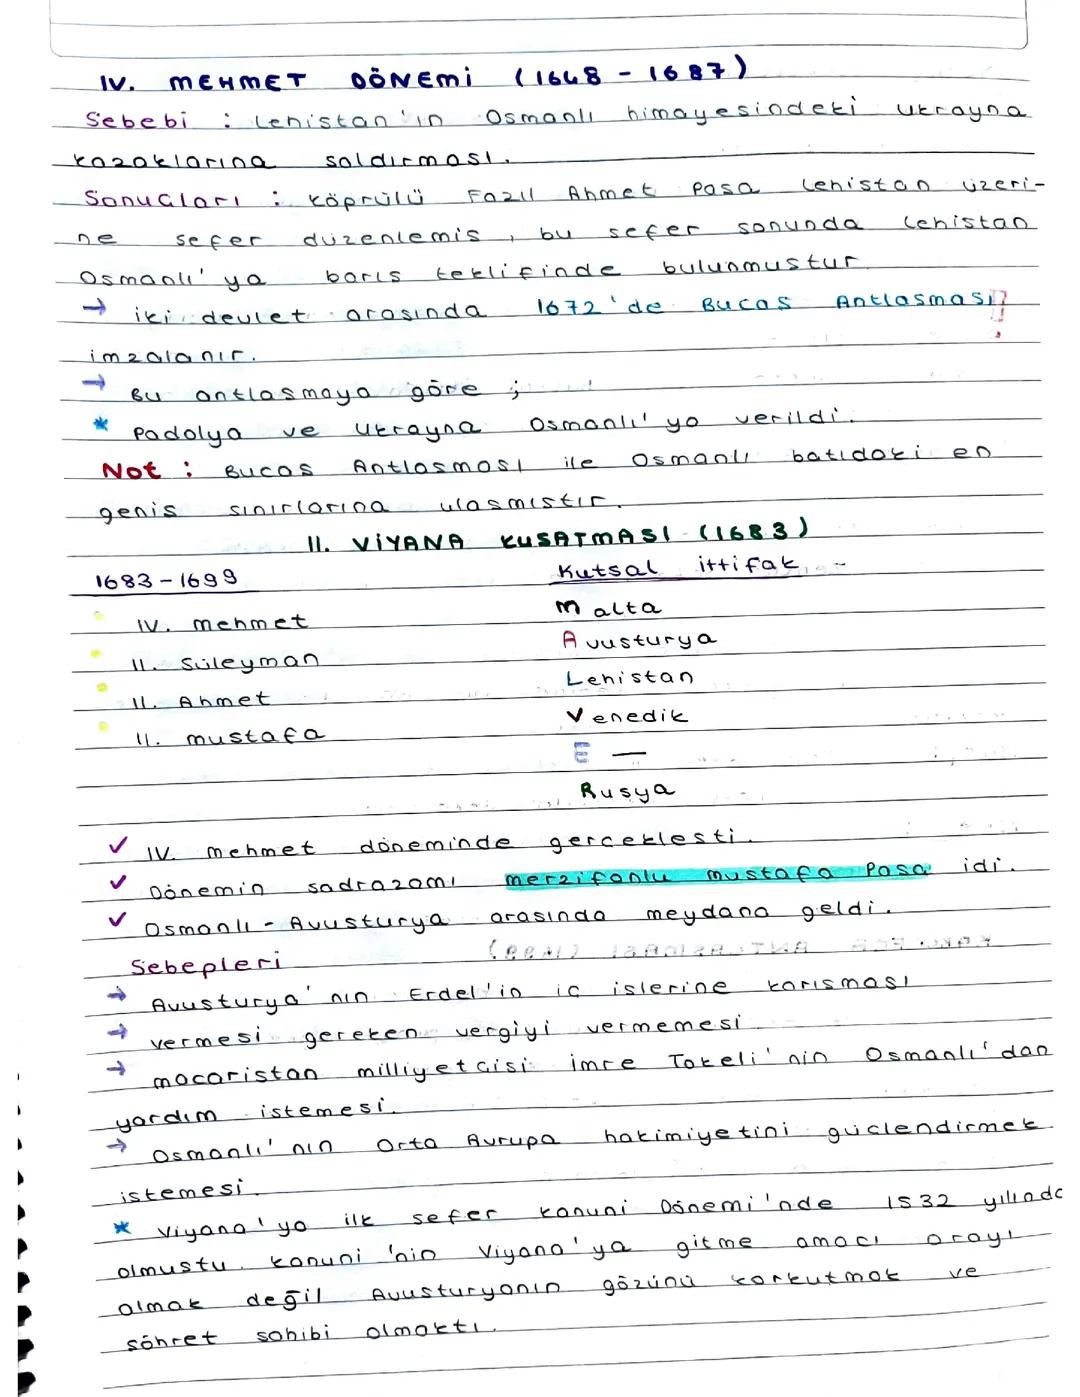 IV. MEHMET DÖNEMİ (1648 - 1687)
Sebebi : Lehistan'ın Osmanlı himayesindeki Ukrayna
kazaklarına saldırması.
Sonuçları : Köprülü Fazıl Ahmet Pasa Lehistan üzeri-
ne sefer düzenlemis, bu sefer sonunda Lehistan
Osmanlı'ya barıs teklifinde bulunmustur.
→ iki devlet arasında 1672'de Bucas Antlasması
imzalanır.
→ Bu antlasmaya göre ;
* Podolya ve Ukrayna Osmanlı'ya verildi.
Not : Bucas Antlasması ile Osmanlı batıdaki en
genis sınırlarına ulasmıstır.
II. VİYANA KUSATMASI (1683)
1683 - 1699 Kutsal ittifak
IV. mehmet Malta
II. Süleyman Avusturya
II. Ahmet Lehistan
II. mustafa Venedik
E —
Rusya
✓ IV. mehmet döneminde gerceklesti.
✓ Dönemin sadrazamı merzifonlu mustafa Pasa idi.
✓ Osmanlı - Avusturya arasında meydana geldi.
Sebepleri
→ Avusturya'nın Erdel'in ic islerine karısması
→ vermesi gereken vergiyi vermemesi
→ macaristan milliyetcisi imre Tokeli'nin Osmanlı'dan
yardım istemesi.
→ Osmanlı'nın Orta Avrupa hakimiyetini güclendirmek
istemesi.
* Viyana'ya ilk sefer kanuni Dönemi'nde 1532 yılında
olmustu. kanuni'nin Viyana'ya gitme amacı orayı
almak değil Avusturyanın gözünü korkutmak ve
söhret sahibi olmaktı.